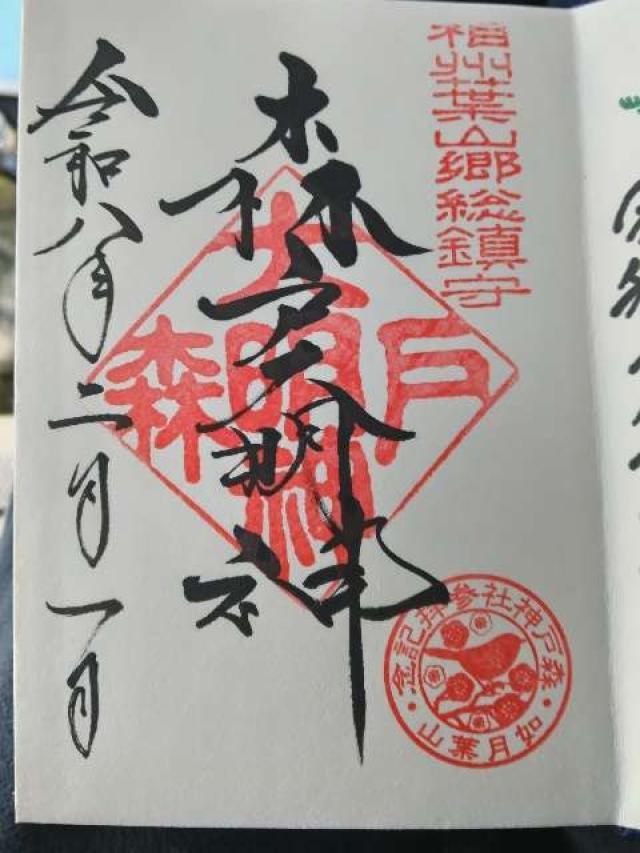 相州葉山郷総鎮守
森戸大明神
令和八年二月一日
森戸大明神
森戸神社參拝記念
如月葉山